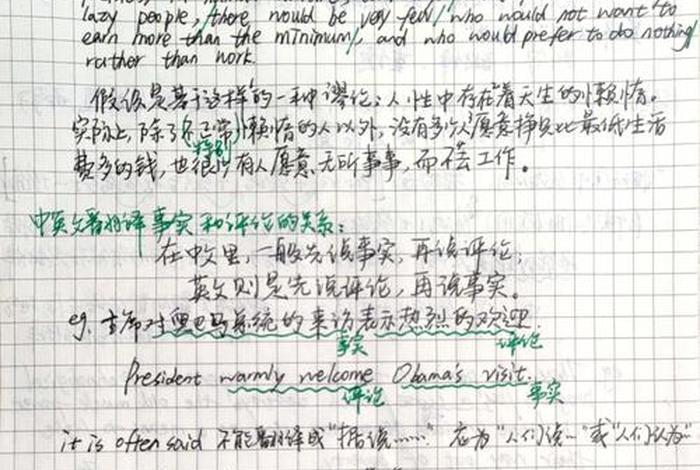 lazy people, there would be very few/ who would not want to
earn more than the minimum/, and who would prefer to do nothing
rather than work.
假设是基于这样的一种谬论:人性中存在着天生的懒惰。
实际上,除了(不正常)懒惰的人以外,没有多少人愿意挣比最低生活
特别
费多的钱,也很少有人愿意无所事事,而不去工作。
中英文翻译事实和评论的关系:
在中文里,一般先说事实,再说评论;
英文则是先说评论,再说事实。
eg. 主席对奥巴马总统的来访表示热烈的欢迎.
事实 评论
President warmly welcome Obama's visit.
评论 事实
it is often said 不能翻译成"据说……" 应为"人们说…"或"人们认为…"